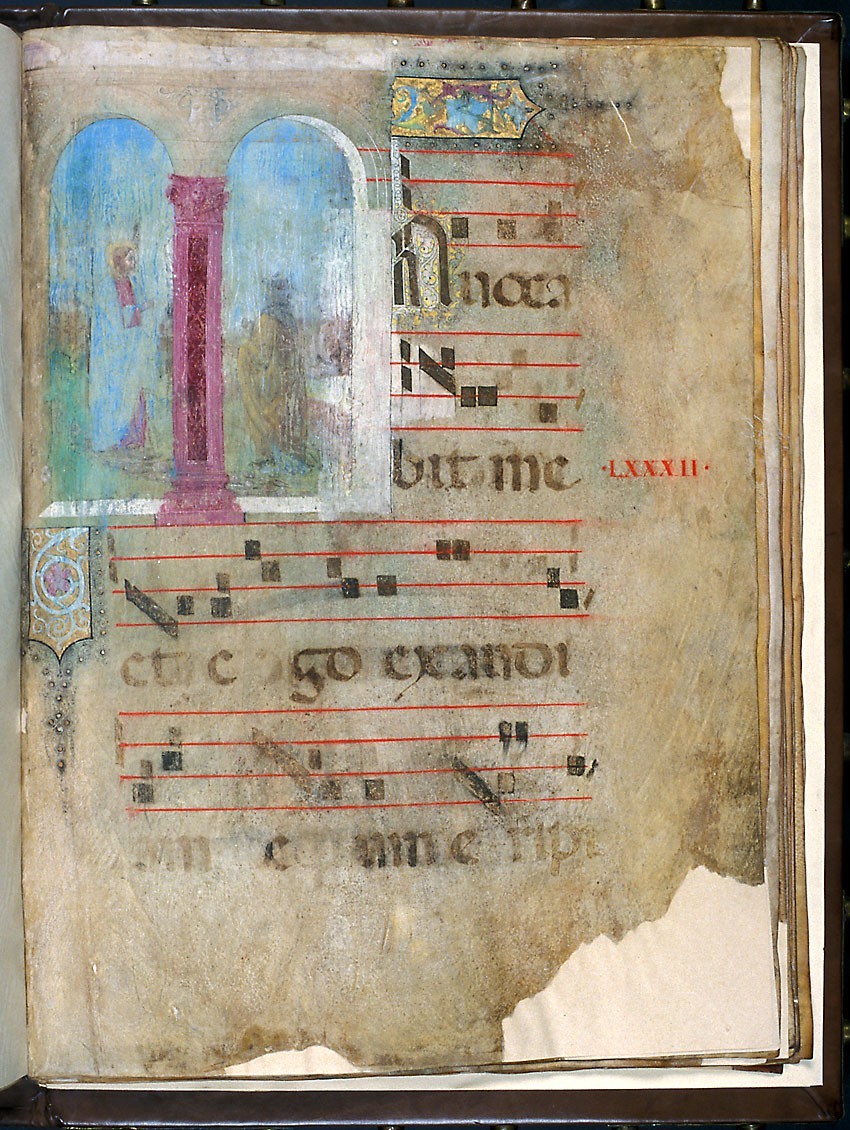 INuoca
bit me
·LXXXII·
et ego exaudi
am eum eripi